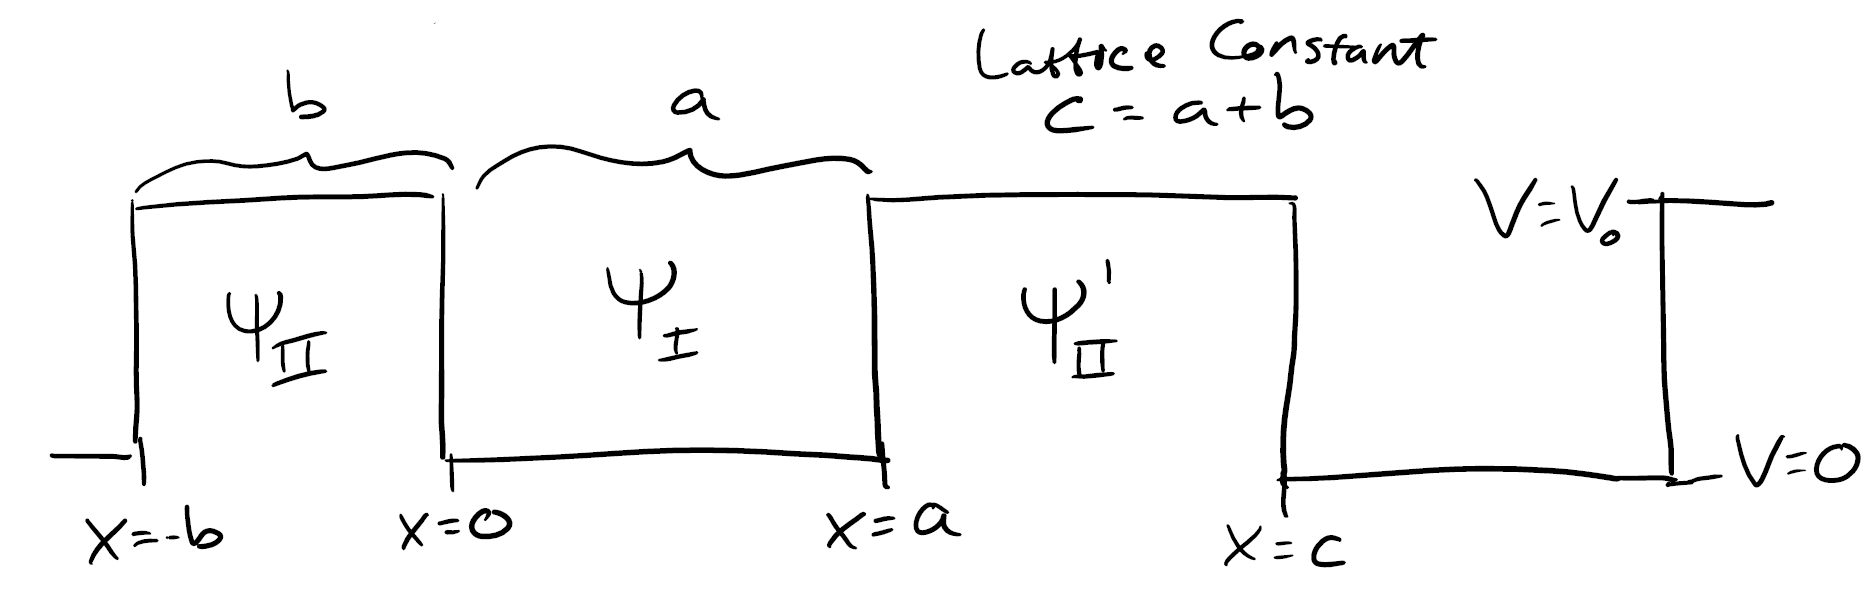 Lattice Constant
c = a + b
b
a
V = V₀
Ψ_II
Ψ_I
Ψ'_II
V = 0
x = -b
x = 0
x = a
x = c